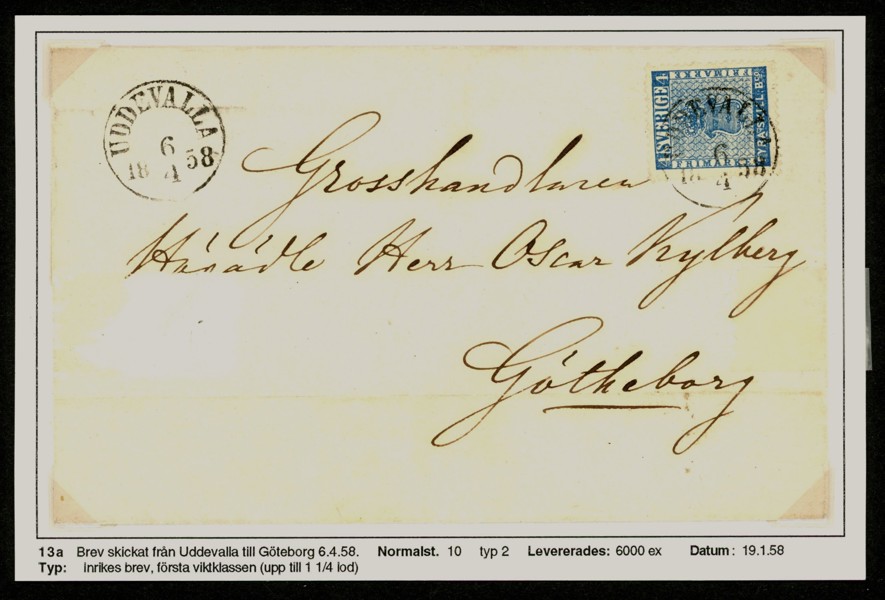 UDDEVALLA
6
18 58
4
SVERIGE 4
FRIMÄRKE
FYRA SKILL. Bco
FRIMÄRKE
UDDEVALLA
6
18 58
4
Grosshandlaren
Häradle Herr Oscar Kylberg
Götheborg
13a Brev skickat från Uddevalla till Göteborg 6.4.58. Normalst. 10 typ 2 Levererades: 6000 ex Datum: 19.1.58
Typ: Inrikes brev, första viktklassen (upp till 1 1/4 lod)